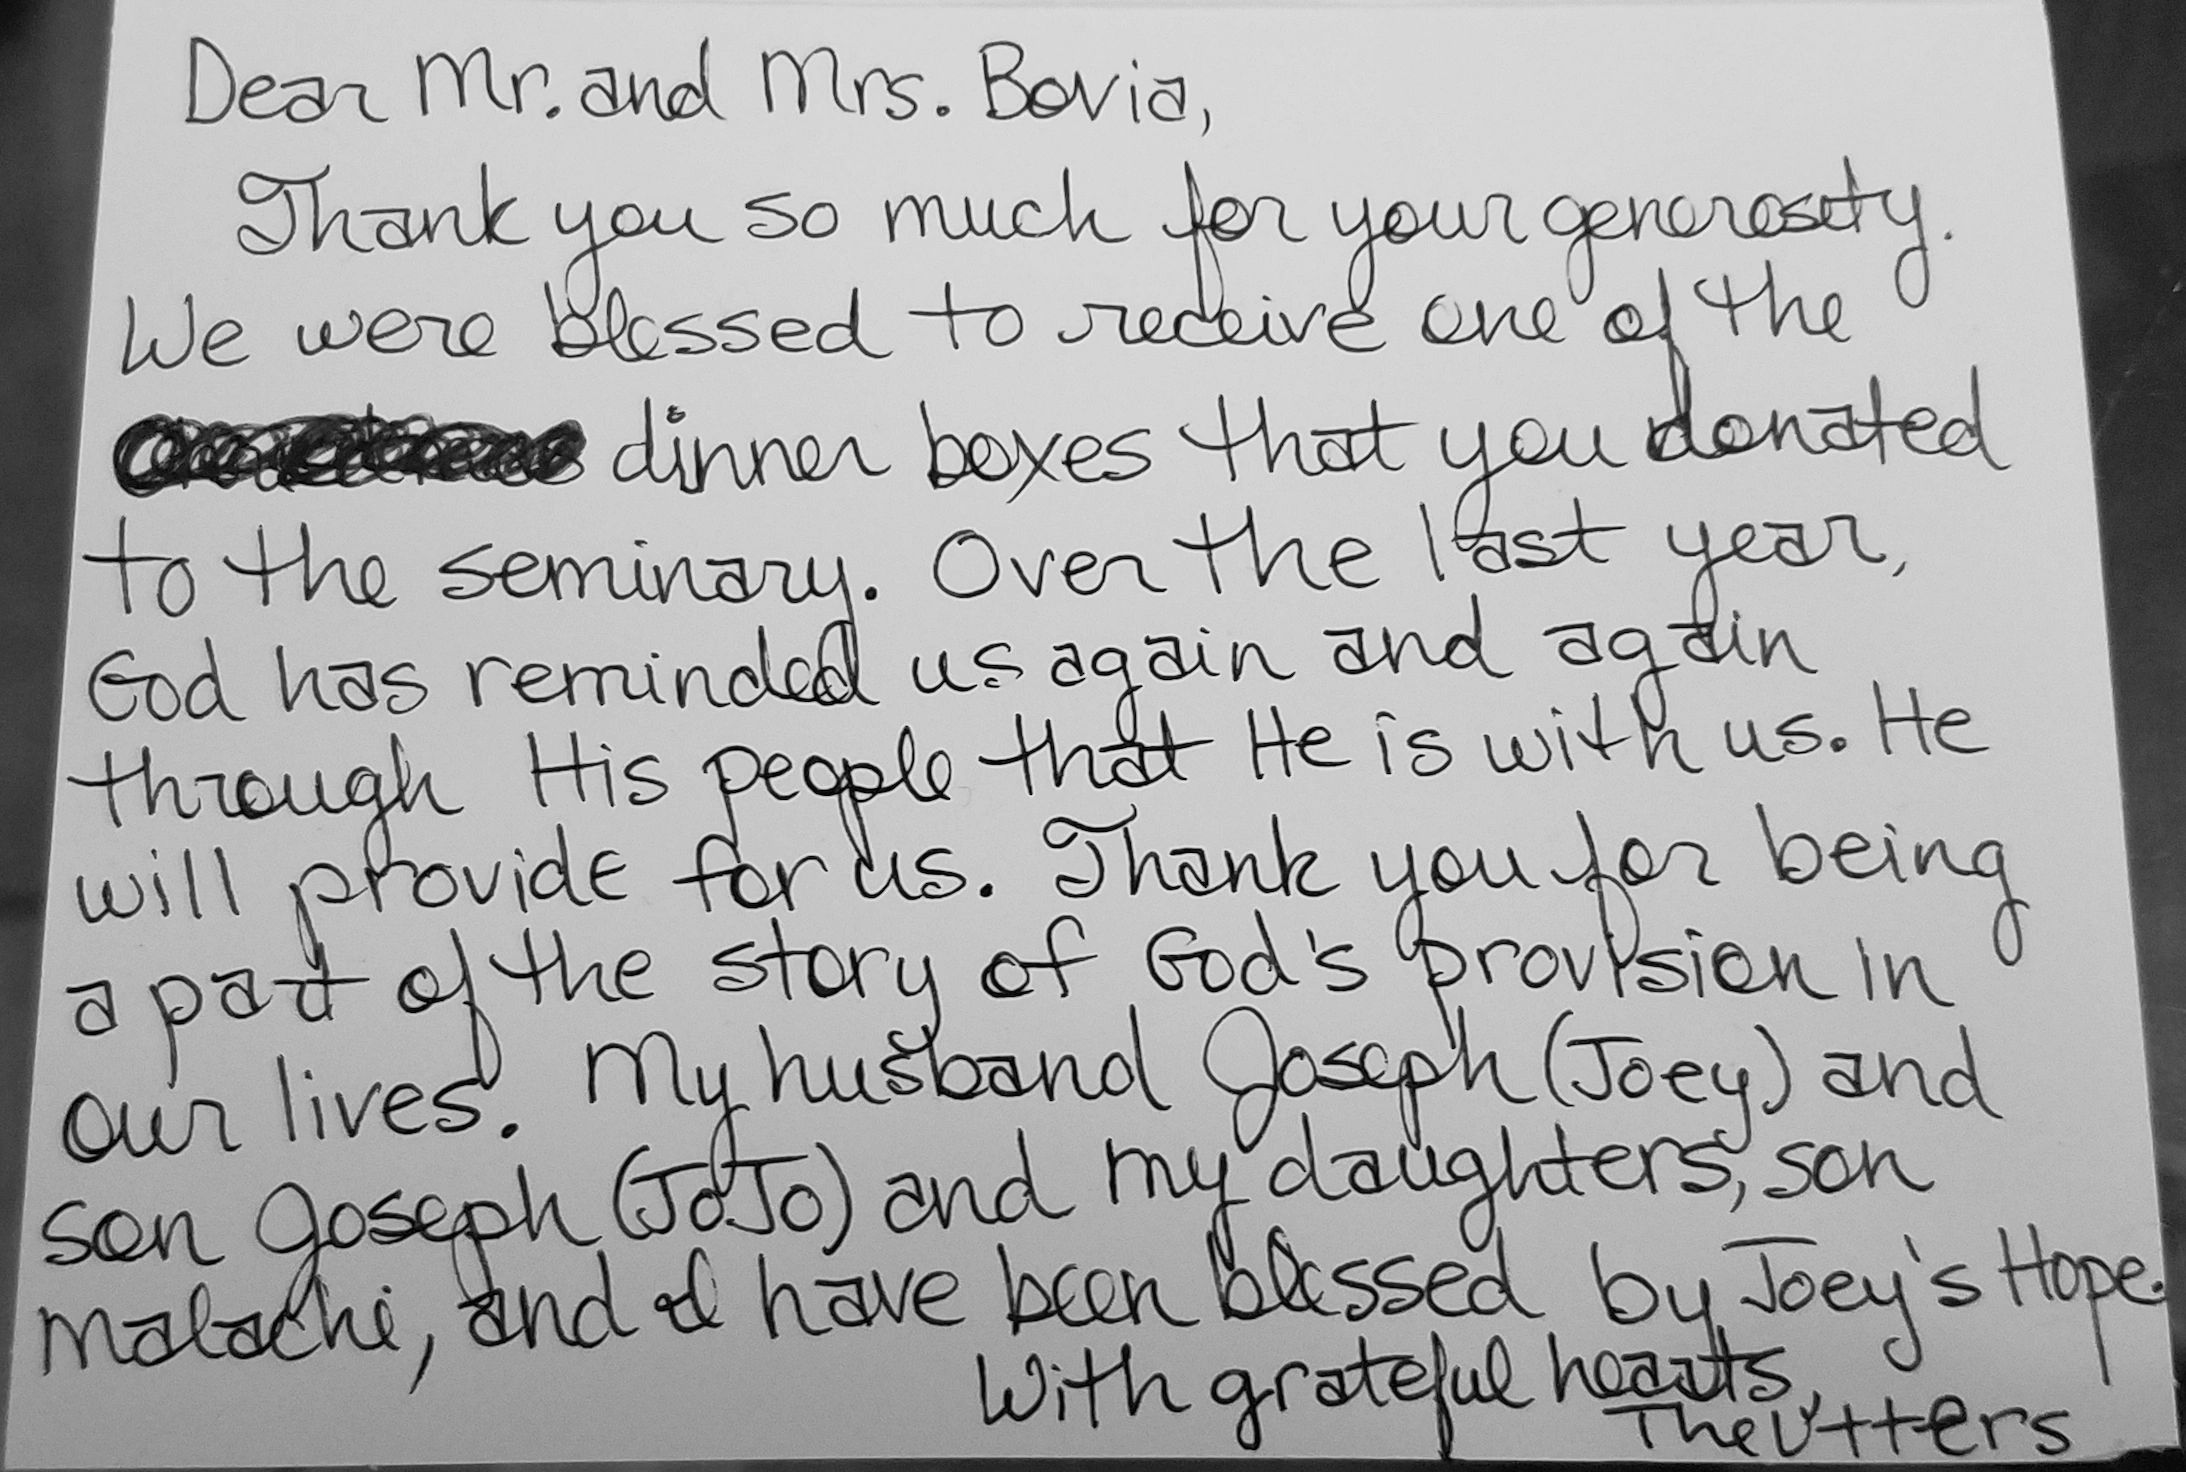 Dear Mr. and Mrs. Bovia,
Thank you so much for your generosity.
We were blessed to receive one of the
dinner boxes that you donated
to the seminary. Over the last year,
God has reminded us again and again
through His people that He is with us. He
will provide for us. Thank you for being
a part of the story of God's provision in
our lives. My husband Joseph (Joey) and
son Joseph (JoJo) and my daughters, son
Malachi, and I have been blessed by Joey's Hope.
With grateful hearts,
The Utters